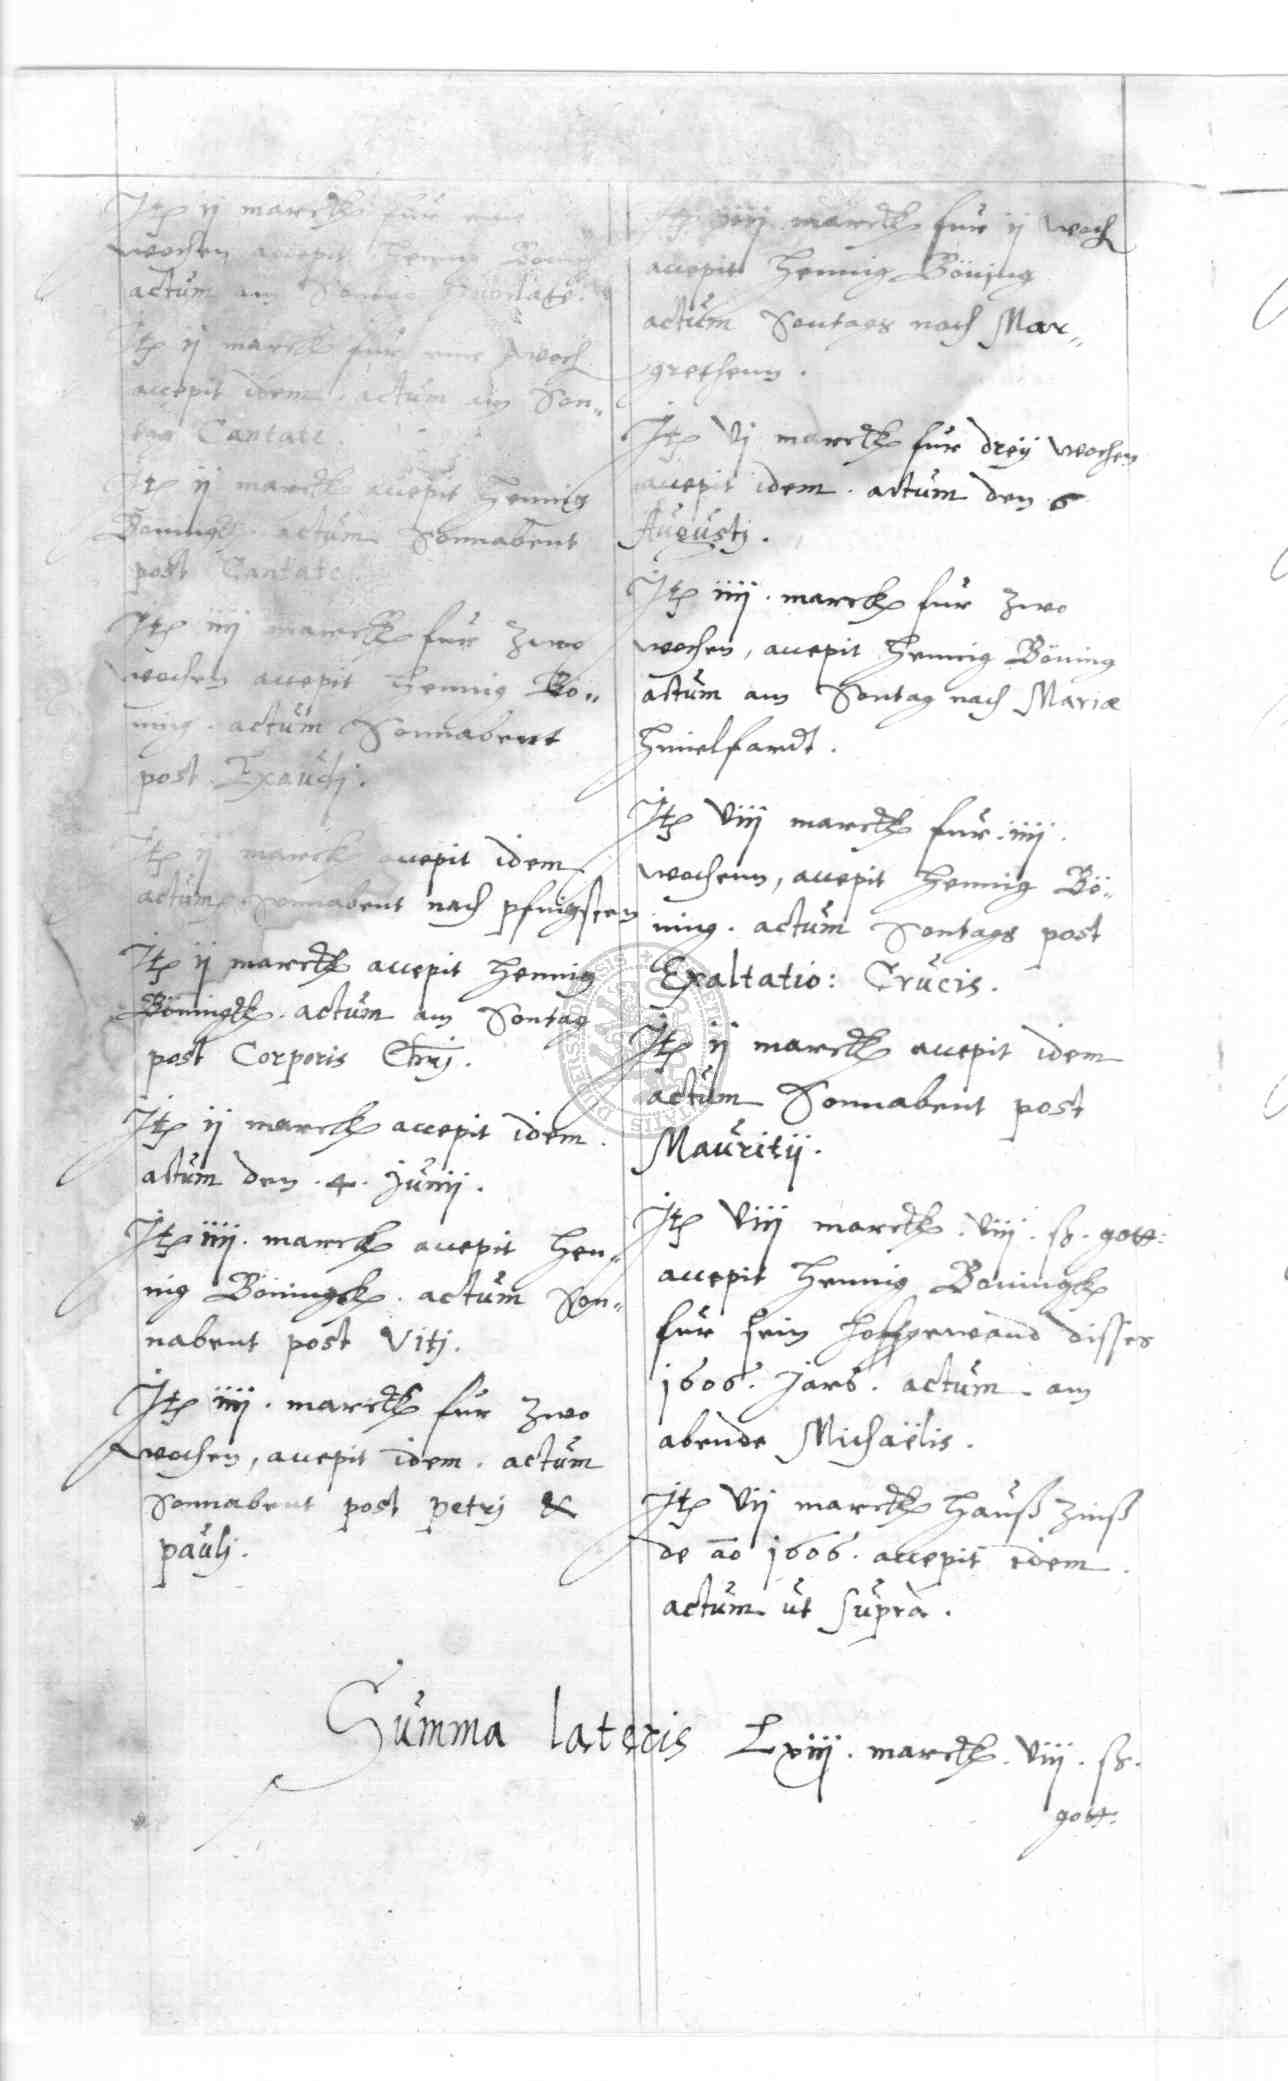 Jtꝫ ij marckꝫ für eine
wochen accepit Hennig Bönig
actum am Sontag Jubilate.
Jtꝫ ij marck für eine woch
accepit idem. actum am Son„
tag Cantate.
Jtꝫ ij marckꝫ accepit Hennig
Böningk. actum Sonnabent
post Cantate.
Jtꝫ iiij marckꝫ für zwo
wochen accepit Hennig Bö„
ning. actum Sonnabent
post Exaudj.
Jtꝫ ij marck accepit idem
actum Sonnabent nach pfingsten
Jtꝫ ij marckꝫ accepit Hennig
Böningk. actum am Sontag
post Corporis Chrj.
Jtꝫ ij marckꝫ accepit idem.
actum den .4. Junij.
Jtꝫ iiij. marckꝫ accepit Hen„
nig Böningk. actum Son„
nabent post Vitj.
Jtꝫ iiij. marckꝫ für zwo
wochen, accepit idem. actum
Sonnabent post petrj &
paulj.
Jtꝫ iiij marckꝫ für ij woch
accepit Hennig Böning
actum Sontags nach Mar„
grethenn.
Jtꝫ vj marckꝫ für dreÿ wochen
accepit idem. actum den 6
Augustj.
Jtꝫ iiij. marckꝫ für zwo
wochen, accepit Hennig Böning
actum am Sontag nach Mariæ
Himelfardt.
Jtꝫ viij marckꝫ für .iiij.
wochenn, accepit Hennig Bö„
ning. actum Sontags post
Exaltatio: Crucis.
Jtꝫ ij marckꝫ accepit idem
actum Sonnabent post
Mauritij.
Jtꝫ viij marckꝫ. viij. ß. gott:
accepit Hennig Boningk
für sein hoffgewand disses
1606. Jars. actum am
abende Michaëlis.
Jtꝫ vij marckꝫ Hauß zinß
de ao 1606. accepit idem.
actum ut supra.
Summa lateris Lxiij. marckꝫ. viij. ß.
gott: